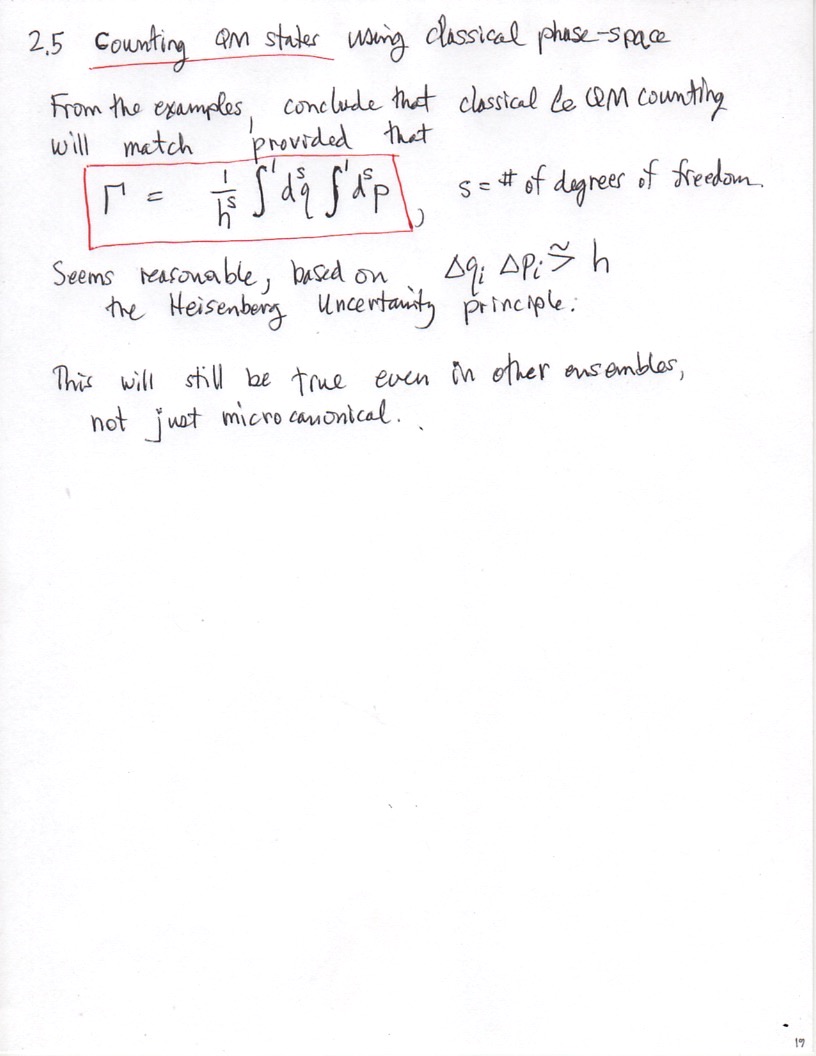 2.5 Counting QM states using classical phase-space
From the examples, conclude that classical & QM counting
will match provided that
Γ = 1/h^s ∫' d^s q ∫' d^s p , s = # of degrees of freedom.
Seems reasonable, based on Δq_i Δp_i ≳ h
the Heisenberg Uncertainity principle.
This will still be true even in other ensembles,
not just microcanonical.
19